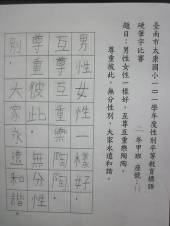 臺南市大康國小一〇一學年度性別平等教育標語
硬筆字比賽
二年甲班 座號：
題目：男性女性一樣好，互尊互重樂陶陶。
尊重彼此，無分性別，大家永遠和諧。
男性女性一樣好，
互尊互重樂陶陶。
尊重彼此，無分性
別，大家永遠和諧